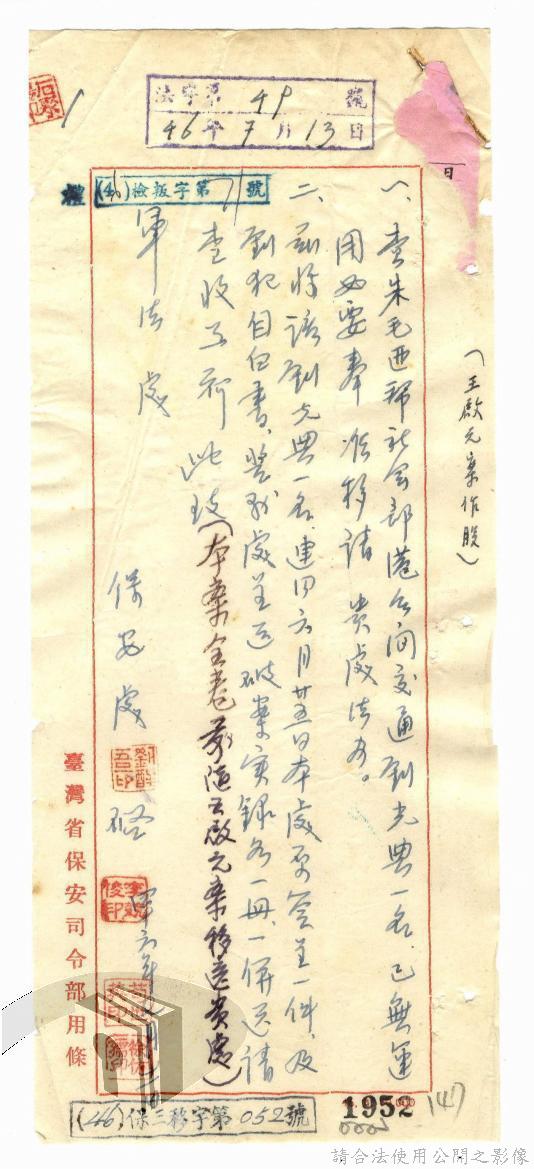 法字第49號
46年7月13日
(46)檢叛字第71號
(王啟元案作股)
一、查朱毛匪幫社會部港台間交通劉光典一名,已無運
用必要奉准移請 貴處法辦。
二、茲將該劉光典一名,連同六月廿五日本處原簽呈一件,及
劉犯自白書、暨本處呈送破案實錄各一冊,一併送請
查收多荷 此致(本案全卷前隨王啟元案移送貴處)
軍法處
保安處 啓
臺灣省保安司令部用條
(46)保三移字第052號
1952
(4)
請合法使用公開之影像